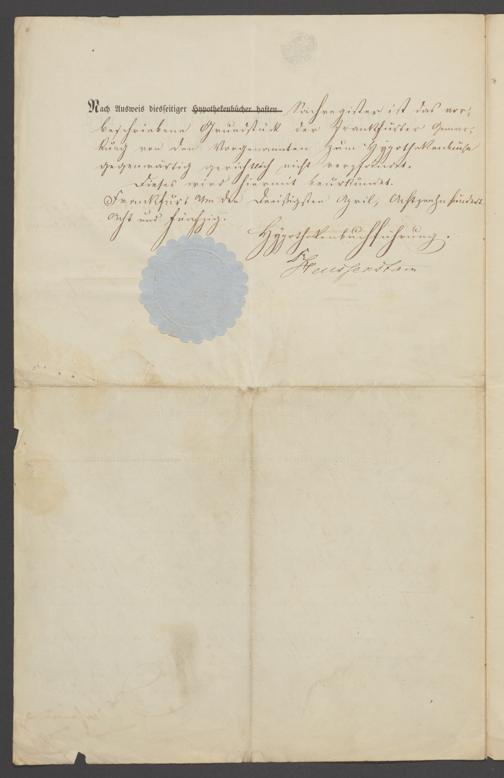 Nach Ausweis diesseitiger Hypothekenbücher haften Sachregister ist das vor-
beschriebene Grundstück der Frankfurter Gemar-
kung von den Vorgenannten zum Hypothekenbuche
gegenwärtig gerichtlich nicht verpfändet.
Dieses wird hiermit beurkundet.
Frankfurt den dreißigsten April, Achtzehnhundert
Acht und fünfzig.
Hypothekenbuchführung.